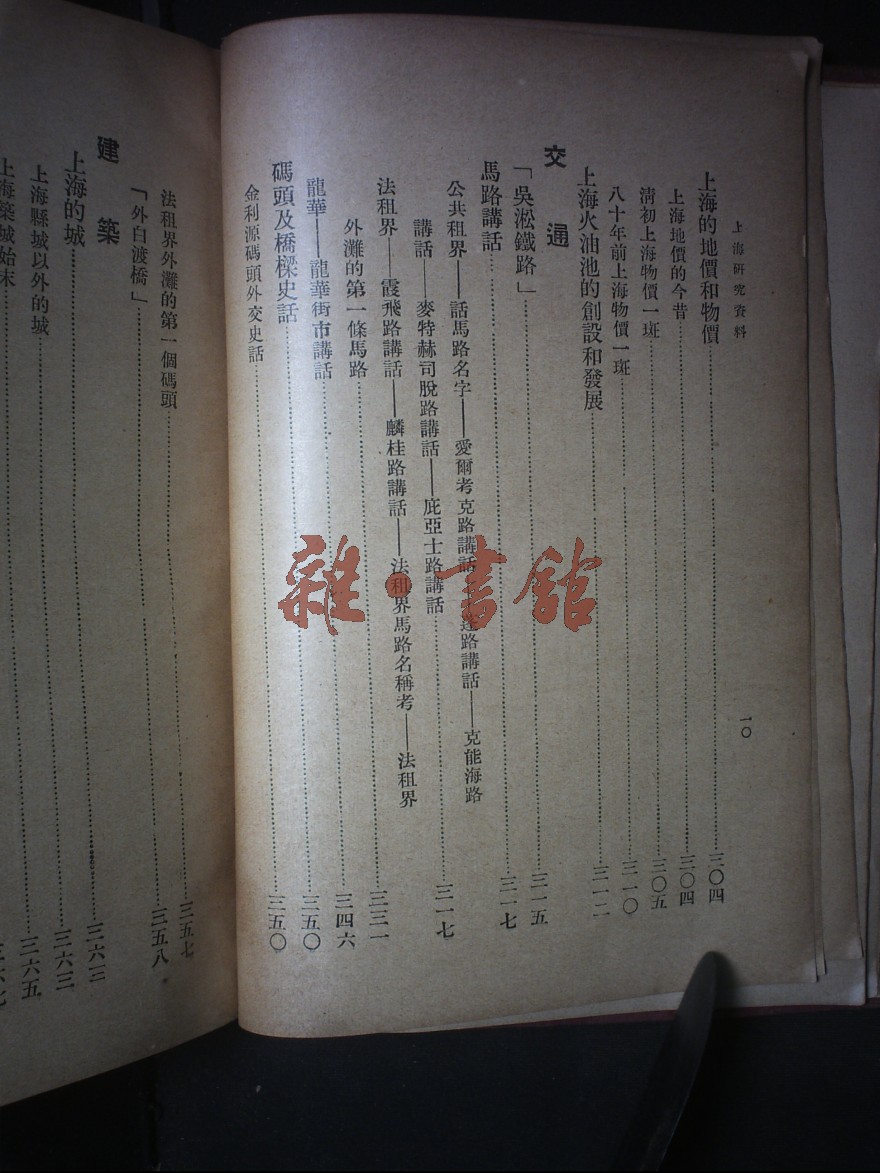 上海研究資料
一〇
上海的地價和物價……三〇四
上海地價的今昔……三〇四
清初上海物價一斑……三〇五
八十年前上海物價一斑……三一〇
上海火油池的創設和發展……三一二
交通
「吳淞鐵路」……三一五
馬路講話……三一七
公共租界——話馬路名字——愛爾考克路講話——蓬路講話——克能海路
講話——麥特赫司脫路講話——庇亞士路講話……三一七
法租界——霞飛路講話——麟桂路講話——法租界馬路名稱考——法租界
外灘的第一條馬路……三三一
龍華——龍華街市講話……三四六
碼頭及橋樑史話……三五〇
金利源碼頭外交史話……三五〇
法租界外灘的第一個碼頭……三五七
「外白渡橋」……三五八
建築
上海的城……三六三
上海縣城以外的城……三六三
上海築城始末……三六五
雜·書館